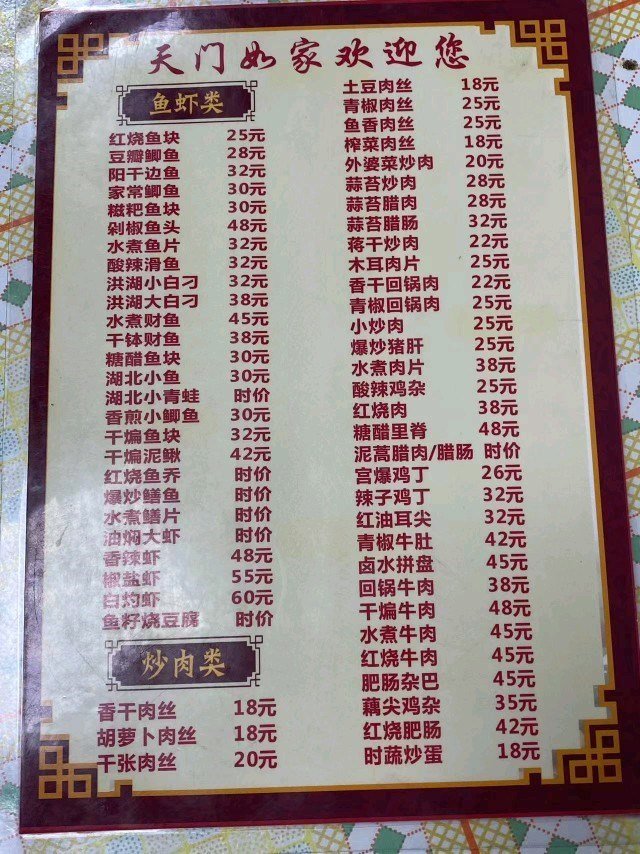 天门如家欢迎您
鱼虾类
红烧鱼块 25元
豆瓣鲫鱼 28元
阳干边鱼 32元
家常鲫鱼 30元
糍粑鱼块 30元
剁椒鱼头 48元
水煮鱼片 32元
酸辣滑鱼 32元
洪湖小白刁 32元
洪湖大白刁 38元
水煮财鱼 45元
干钵财鱼 38元
糖醋鱼块 30元
湖北小鱼 30元
湖北小青蛙 时价
香煎小鲫鱼 30元
干煸鱼块 32元
干煸泥鳅 42元
红烧鱼乔 时价
爆炒鳝鱼 时价
水煮鳝片 时价
油焖大虾 时价
香辣虾 48元
椒盐虾 55元
白灼虾 60元
鱼籽烧豆腐 时价
炒肉类
香干肉丝 18元
胡萝卜肉丝 18元
千张肉丝 20元
土豆肉丝 18元
青椒肉丝 25元
鱼香肉丝 25元
榨菜肉丝 18元
外婆菜炒肉 20元
蒜苔炒肉 28元
蒜苔腊肉 28元
蒜苔腊肠 32元
蒋干炒肉 22元
木耳肉片 25元
香干回锅肉 22元
青椒回锅肉 25元
小炒肉 25元
爆炒猪肝 25元
水煮肉片 38元
酸辣鸡杂 25元
红烧肉 38元
糖醋里脊 48元
泥蒿腊肉/腊肠 时价
宫爆鸡丁 26元
辣子鸡丁 32元
红油耳尖 32元
青椒牛肚 42元
卤水拼盘 45元
回锅牛肉 38元
干煸牛肉 48元
水煮牛肉 45元
红烧牛肉 45元
肥肠杂巴 45元
藕尖鸡杂 35元
红烧肥肠 42元
时蔬炒蛋 18元